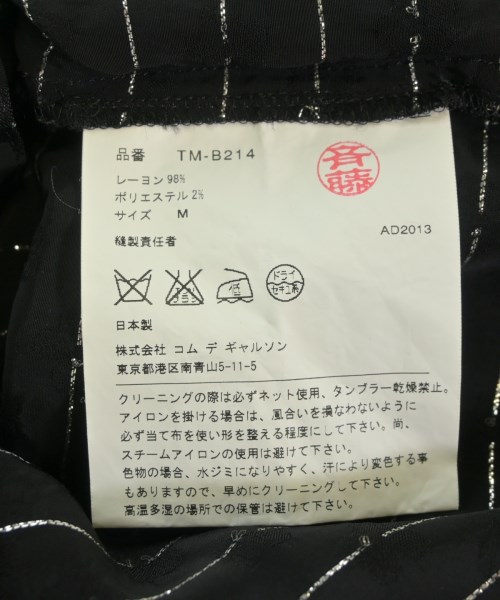 品番 TM-B214
斉藤
レーヨン 98%
ポリエステル 2%
サイズ M
AD2013
縫製責任者
エンソ サラシ
低
ドライ
セキユ系
日本製
株式会社 コム デ ギャルソン
東京都港区南青山5-11-5
クリーニングの際は必ずネット使用、タンブラー乾燥禁止。
アイロンを掛ける場合は、風合いを損なわないように
必ず当て布を使い形を整える程度にして下さい。尚、
スチームアイロンの使用は避けて下さい。
色物の場合、水ジミになりやすく、汗により変色する事
もありますので、早めにクリーニングして下さい。
高温多湿の場所での保管は避けて下さい。